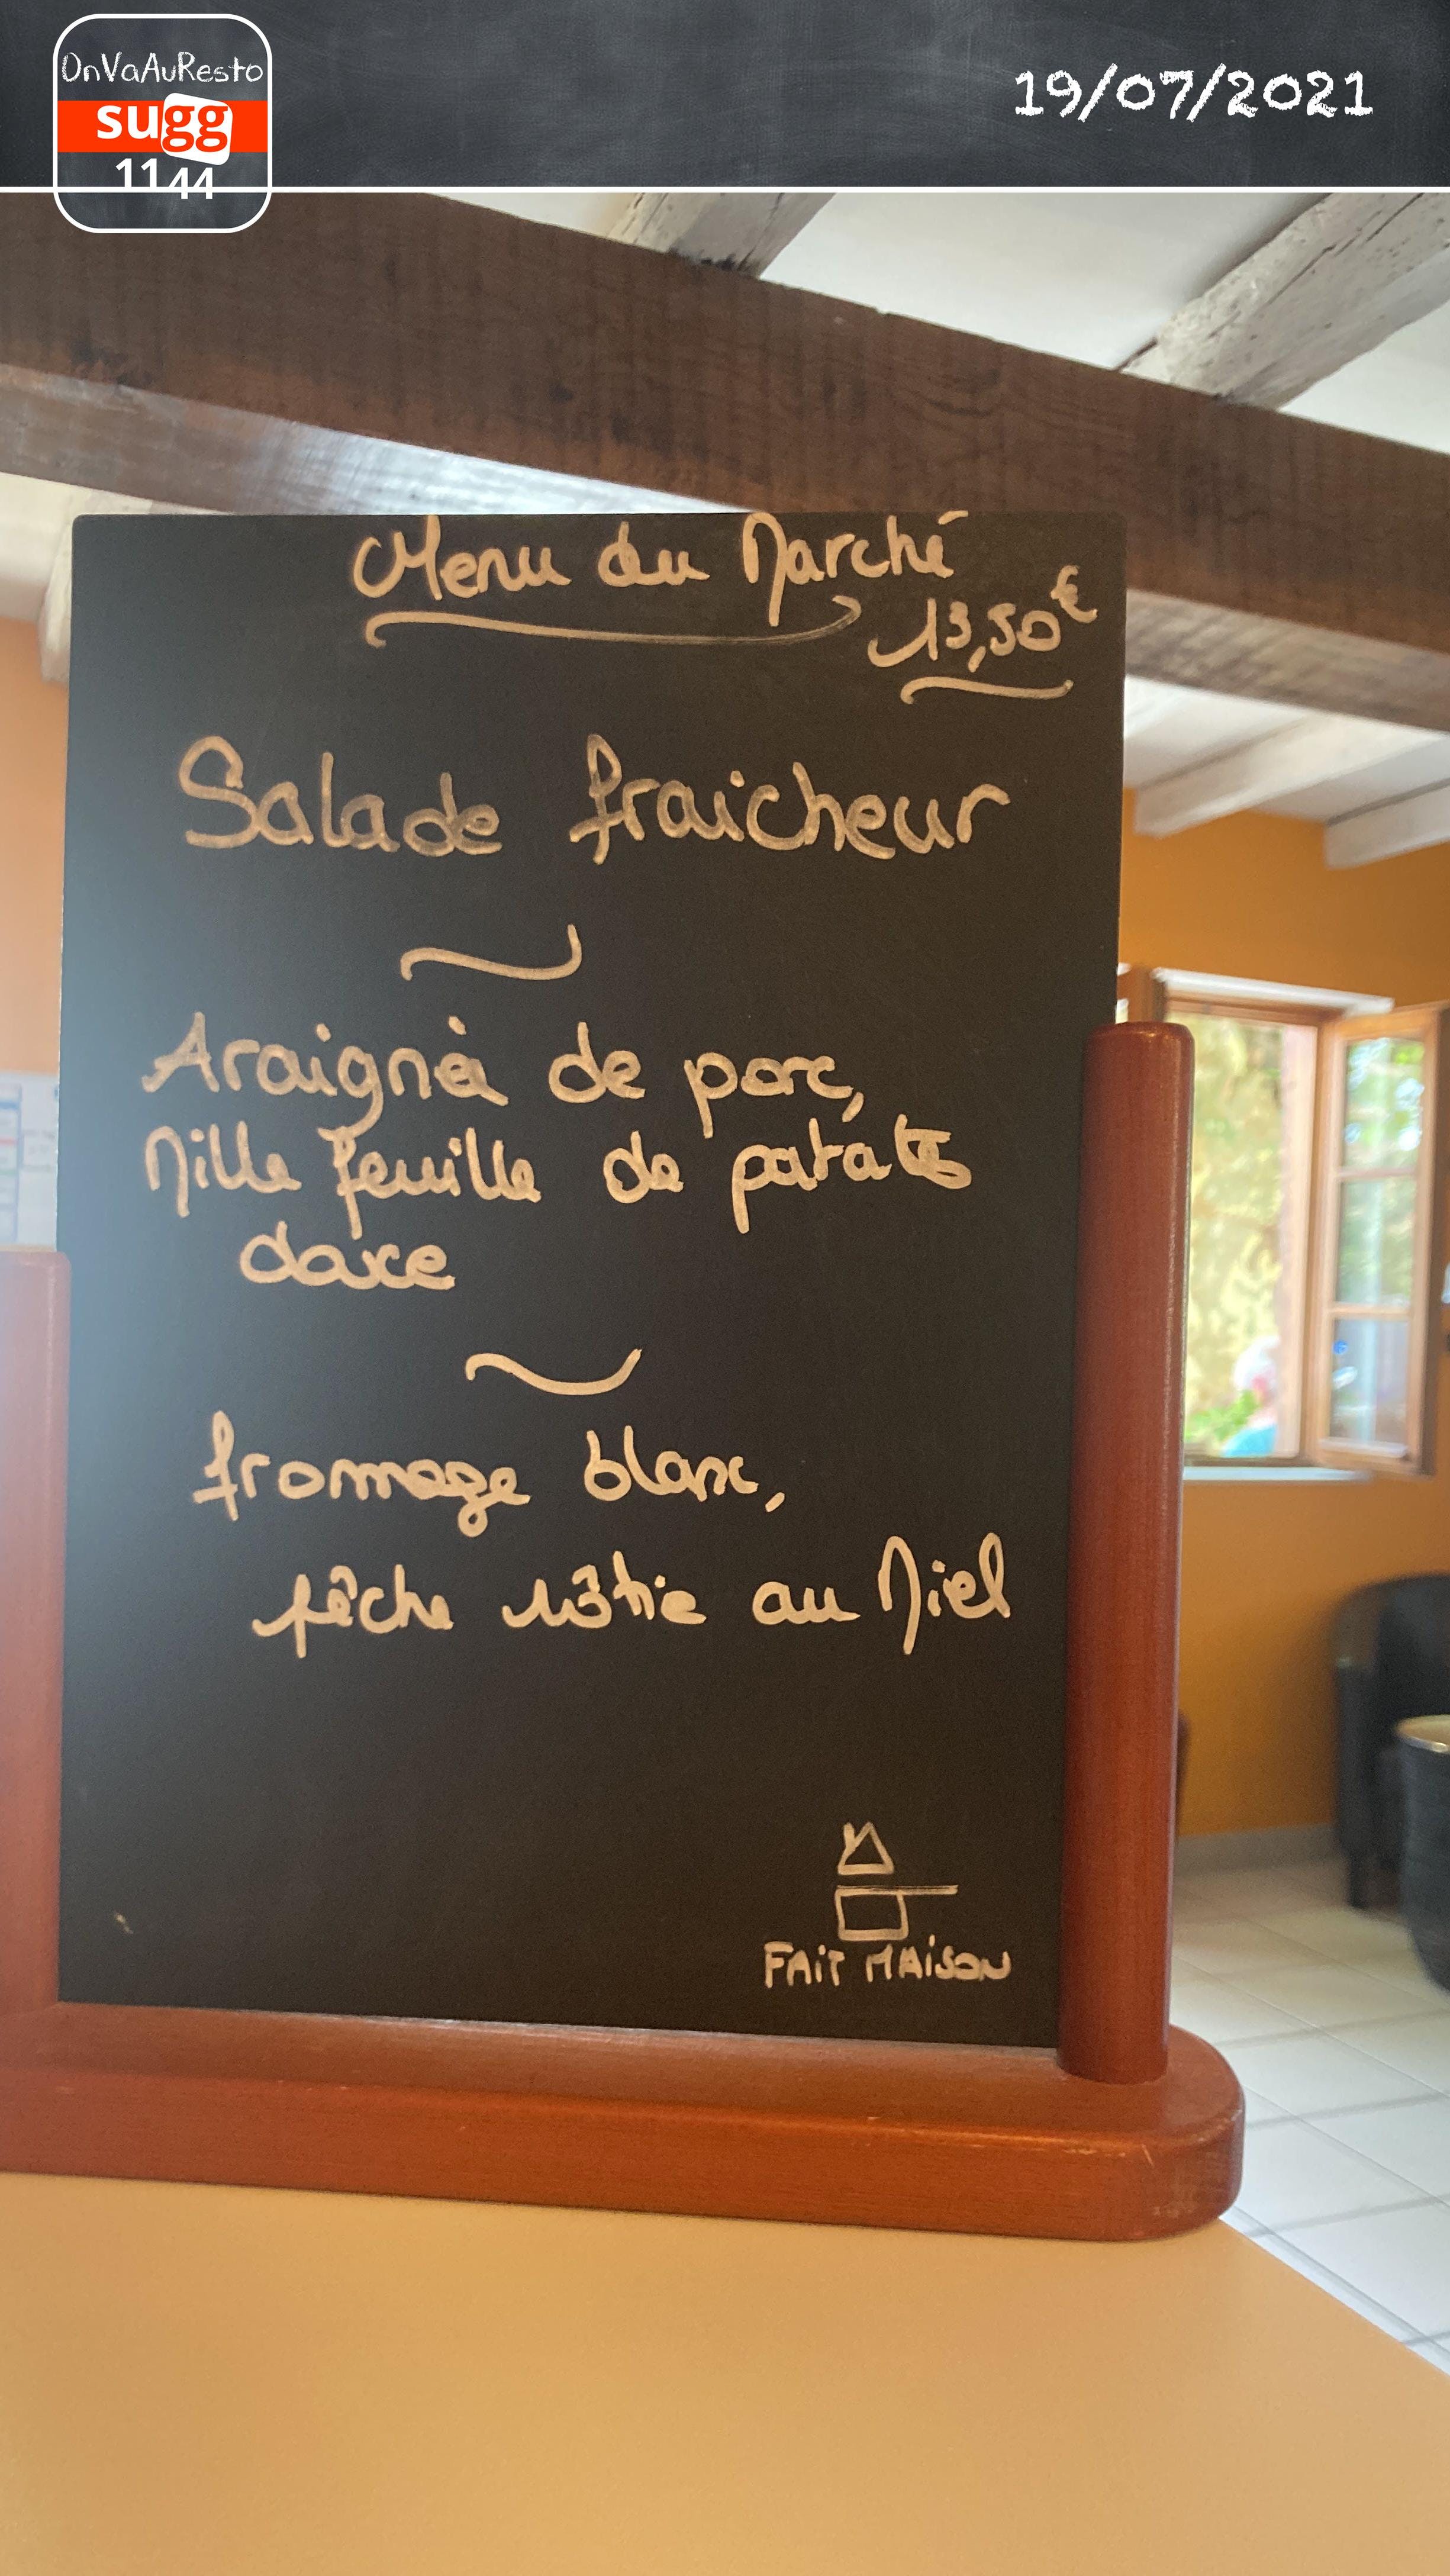 OnVaAuResto
sugg
1144
19/07/2021
Menu du Marché
13,50€
Salade fraicheur
Araignée de porc,
Mille feuille de patates
douce
fromage blanc,
pêche rôtie au Miel
FAIT MAISON